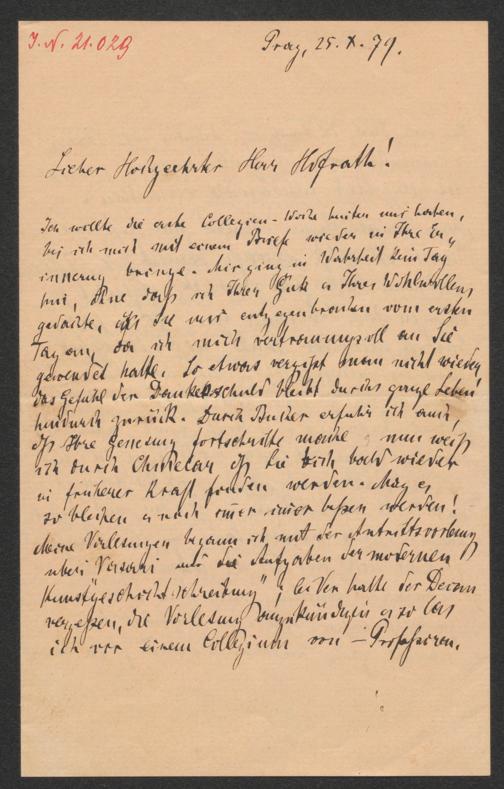 J. N. 21.029
Prag, 25. X. 79.
Lieber Hochgeehrter Herr Hofrath!
Ich wollte die erste Collegien-Woche hinter mir haben,
bis ich mich mit einem Briefe wieder in Ihre Er-
innerung bringe. Mir ging in Wahrheit kein Tag
hin, ohne daß ich Ihrer Güte u Ihres Wohlwollens
gedachte, die Sie mir entgegenbrachten vom ersten
Tag an, da ich mich vertrauungsvoll an Sie
gewendet hatte. So etwas vergißt man nicht wieder
das Gefühl der Dankesschuld bleibt durchs ganze Leben
hindurch zurück. Durch Bucher erfuhr ich auch,
daß Ihre Genesung Fortschritte mache, nun weiß
ich durch Chmelar daß Sie sich bald wieder
in früherer Kraft finden werden. Mag es
so bleiben u noch immer besser werden!
Meine Vorlesungen begann ich mit der Antrittsvorlesung
über Vasari und die Aufgaben der modernen
Kunstgeschichtschreibung"; leider hatte der Decan
vergessen, die Vorlesung anzukündigen u so las
ich vor einem Collegium von – Professoren.